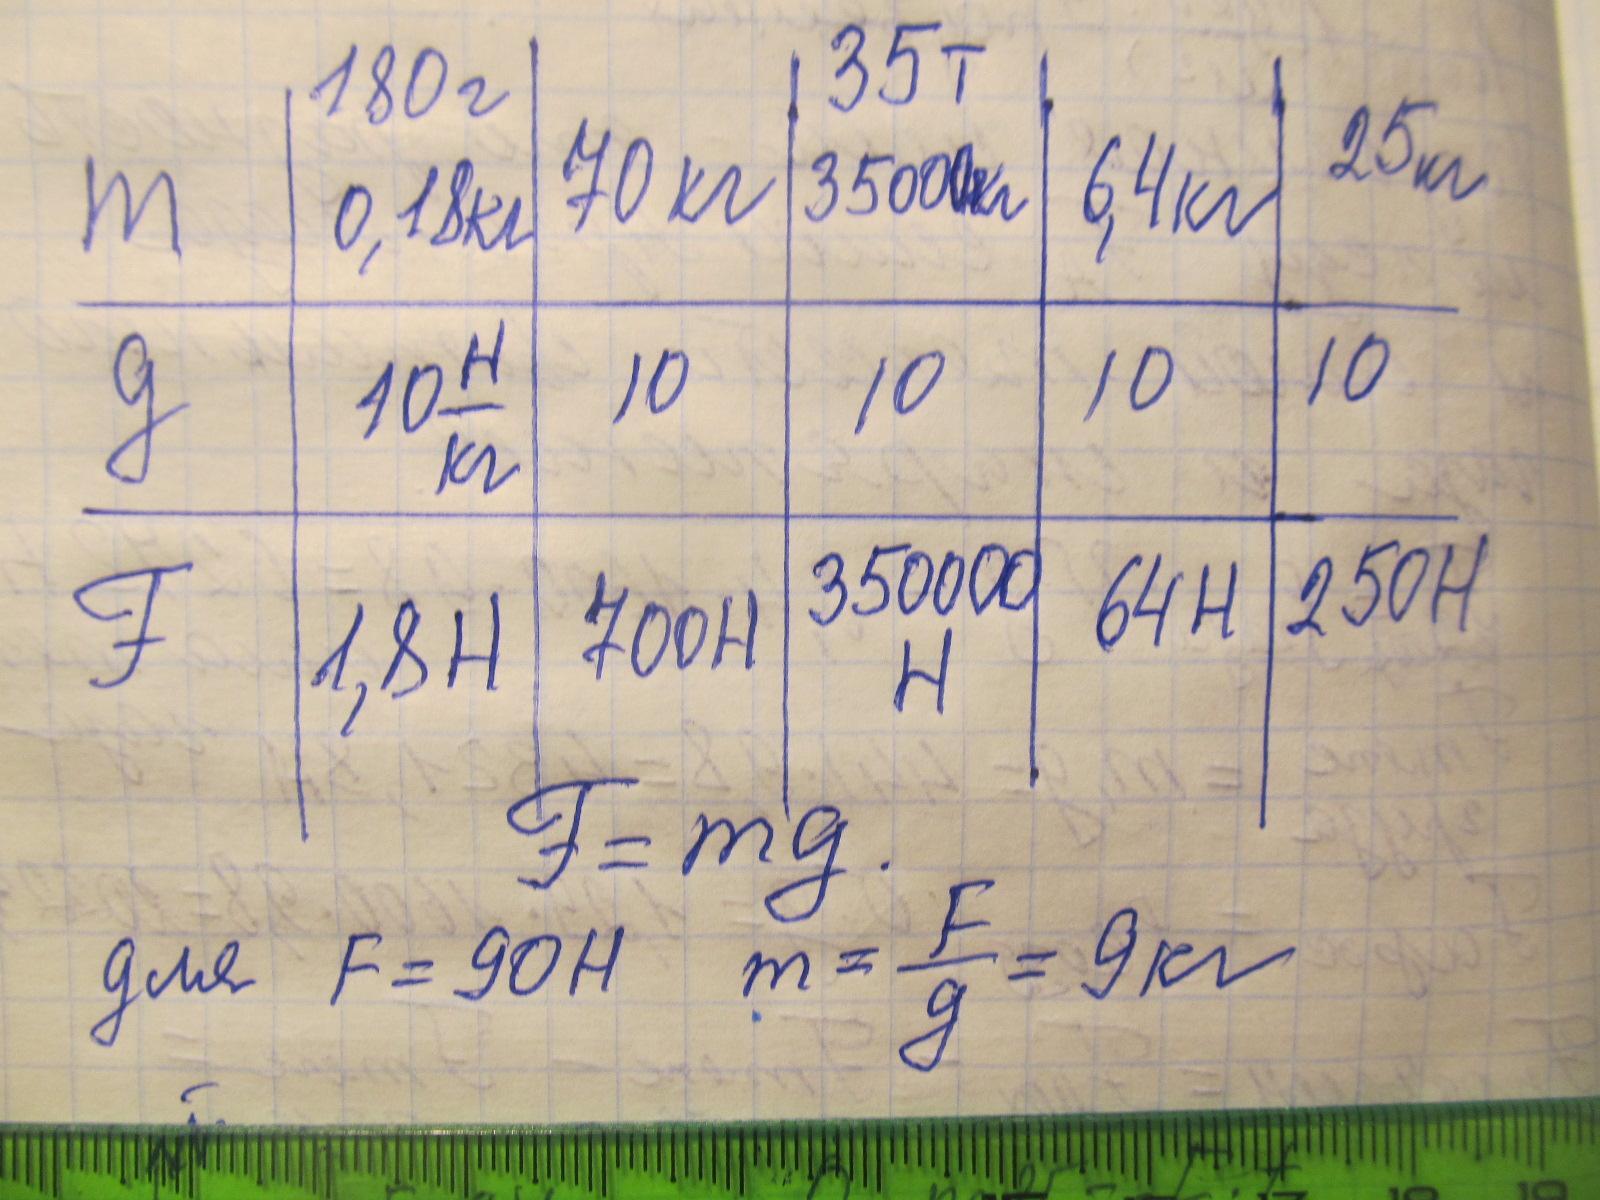 180г 35т
m 0,18кг 70кг 35000кг 6,4кг 25кг
g 10 Н/кг 10 10 10 10
F 1,8Н 700Н 350000 Н 64Н 250Н
F = mg.
для F = 90Н m = F/g = 9кг